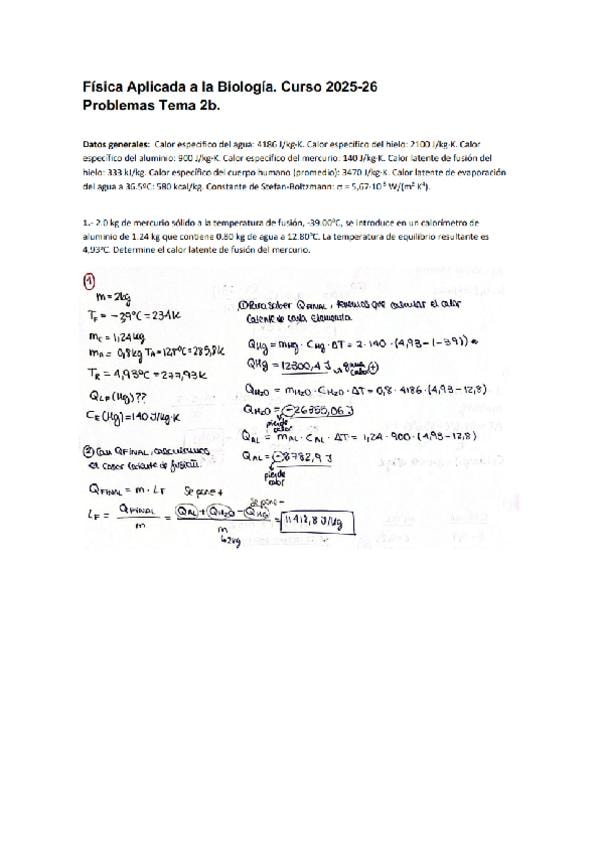 Física Aplicada a la Biología. Curso 2025-26
Problemas Tema 2b.
Datos generales: Calor específico del agua: 4186 J/kg·K. Calor específico del hielo: 2100 J/kg·K. Calor
específico del aluminio: 900 J/kg·K. Calor específico del mercurio: 140 J/kg·K. Calor latente de fusión del
hielo: 333 kJ/kg. Calor específico del cuerpo humano (promedio): 3470 J/kg·K. Calor latente de evaporación
del agua a 36.5ºC: 580 kcal/kg. Constante de Stefan-Boltzmann: σ = 5,67·10⁻⁸ W/(m² K⁴).
1.- 2.0 kg de mercurio sólido a la temperatura de fusión, -39.00ºC, se introduce en un calorímetro de
aluminio de 1.24 kg que contiene 0.80 kg de agua a 12.80ºC. La temperatura de equilibrio resultante es
4,93ºC. Determine el calor latente de fusión del mercurio.
①
m = 2kg
T_F = -39ºC = 234K
m_C = 1,24kg
m_A = 0,8kg T_A = 12,8ºC = 285,8K
T_R = 4,93ºC = 277,93K
Q_LF (Hg)??
C_E (Hg) = 140 J/kg·K
① Para saber Q_FINAL, tenemos que calcular el calor
de cada elemento
Q_Hg = m_Hg · C_Hg · ΔT = 2 · 140 · (4,93 - (-39))
Q_Hg = 12300,4 J → gana calor (+)
Q_H2O = m_H2O · C_H2O · ΔT = 0,8 · 4186 · (4,93 - 12,8)
Q_H2O = -26355,06 J
pierde
calor
Q_AL = m_AL · C_AL · ΔT = 1,24 · 900 · (4,93 - 12,8)
Q_AL = -8782,9 J
pierde
calor
② Con Q_FINAL, calculamos
el calor latente de fusión
Q_FINAL = m · L_F Se pone +
Se pone -
L_F = Q_FINAL / m = Q_AL + Q_H2O - Q_Hg / m = 11412,8 J/kg